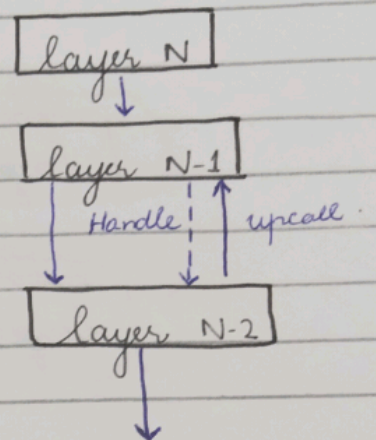 layer N
layer N-1
Handle upcall.
layer N-2